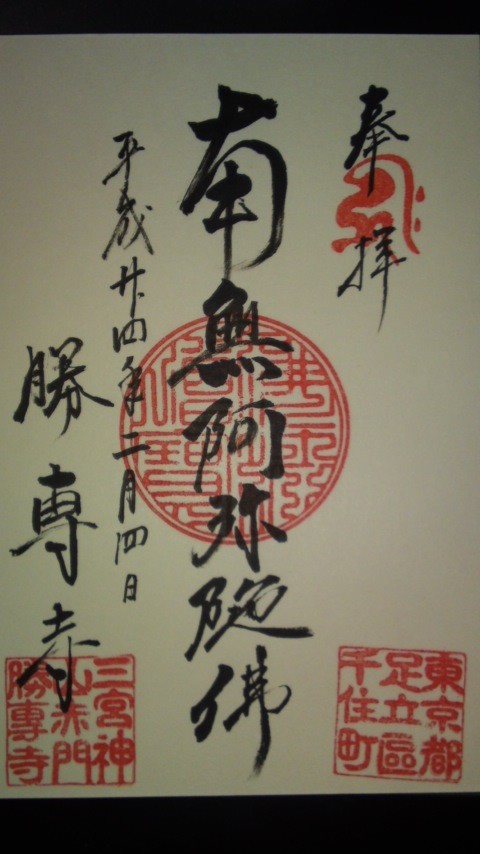 奉拝
南無阿弥陀佛
平成廿四年二月四日
勝専寺
東京都
足立區
千住町
三宮神
山赤門
勝專寺